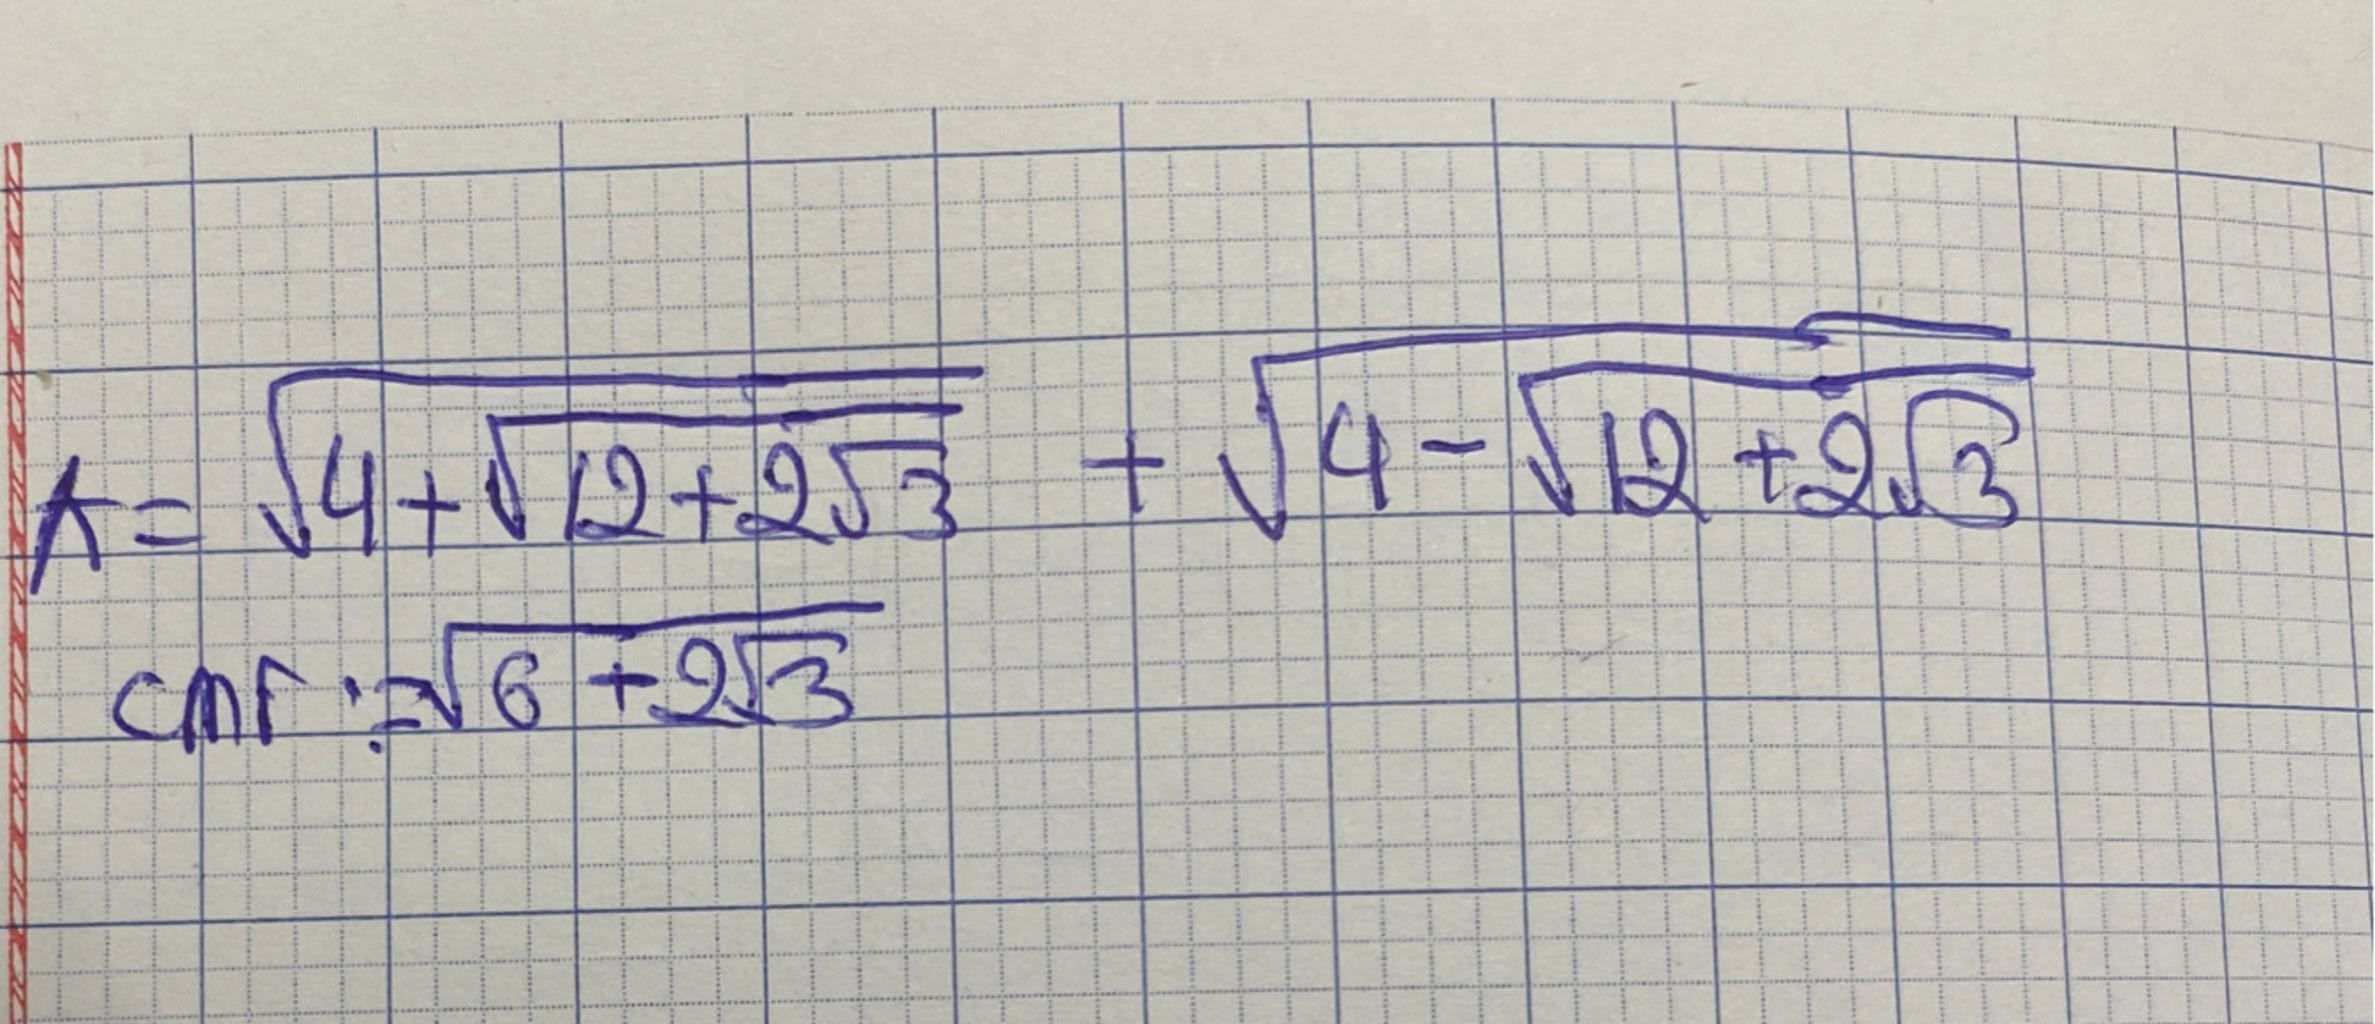 A = √(4+√(12+2√3)) + √(4-√(12+2√3))
CMR := √(6+2√3)